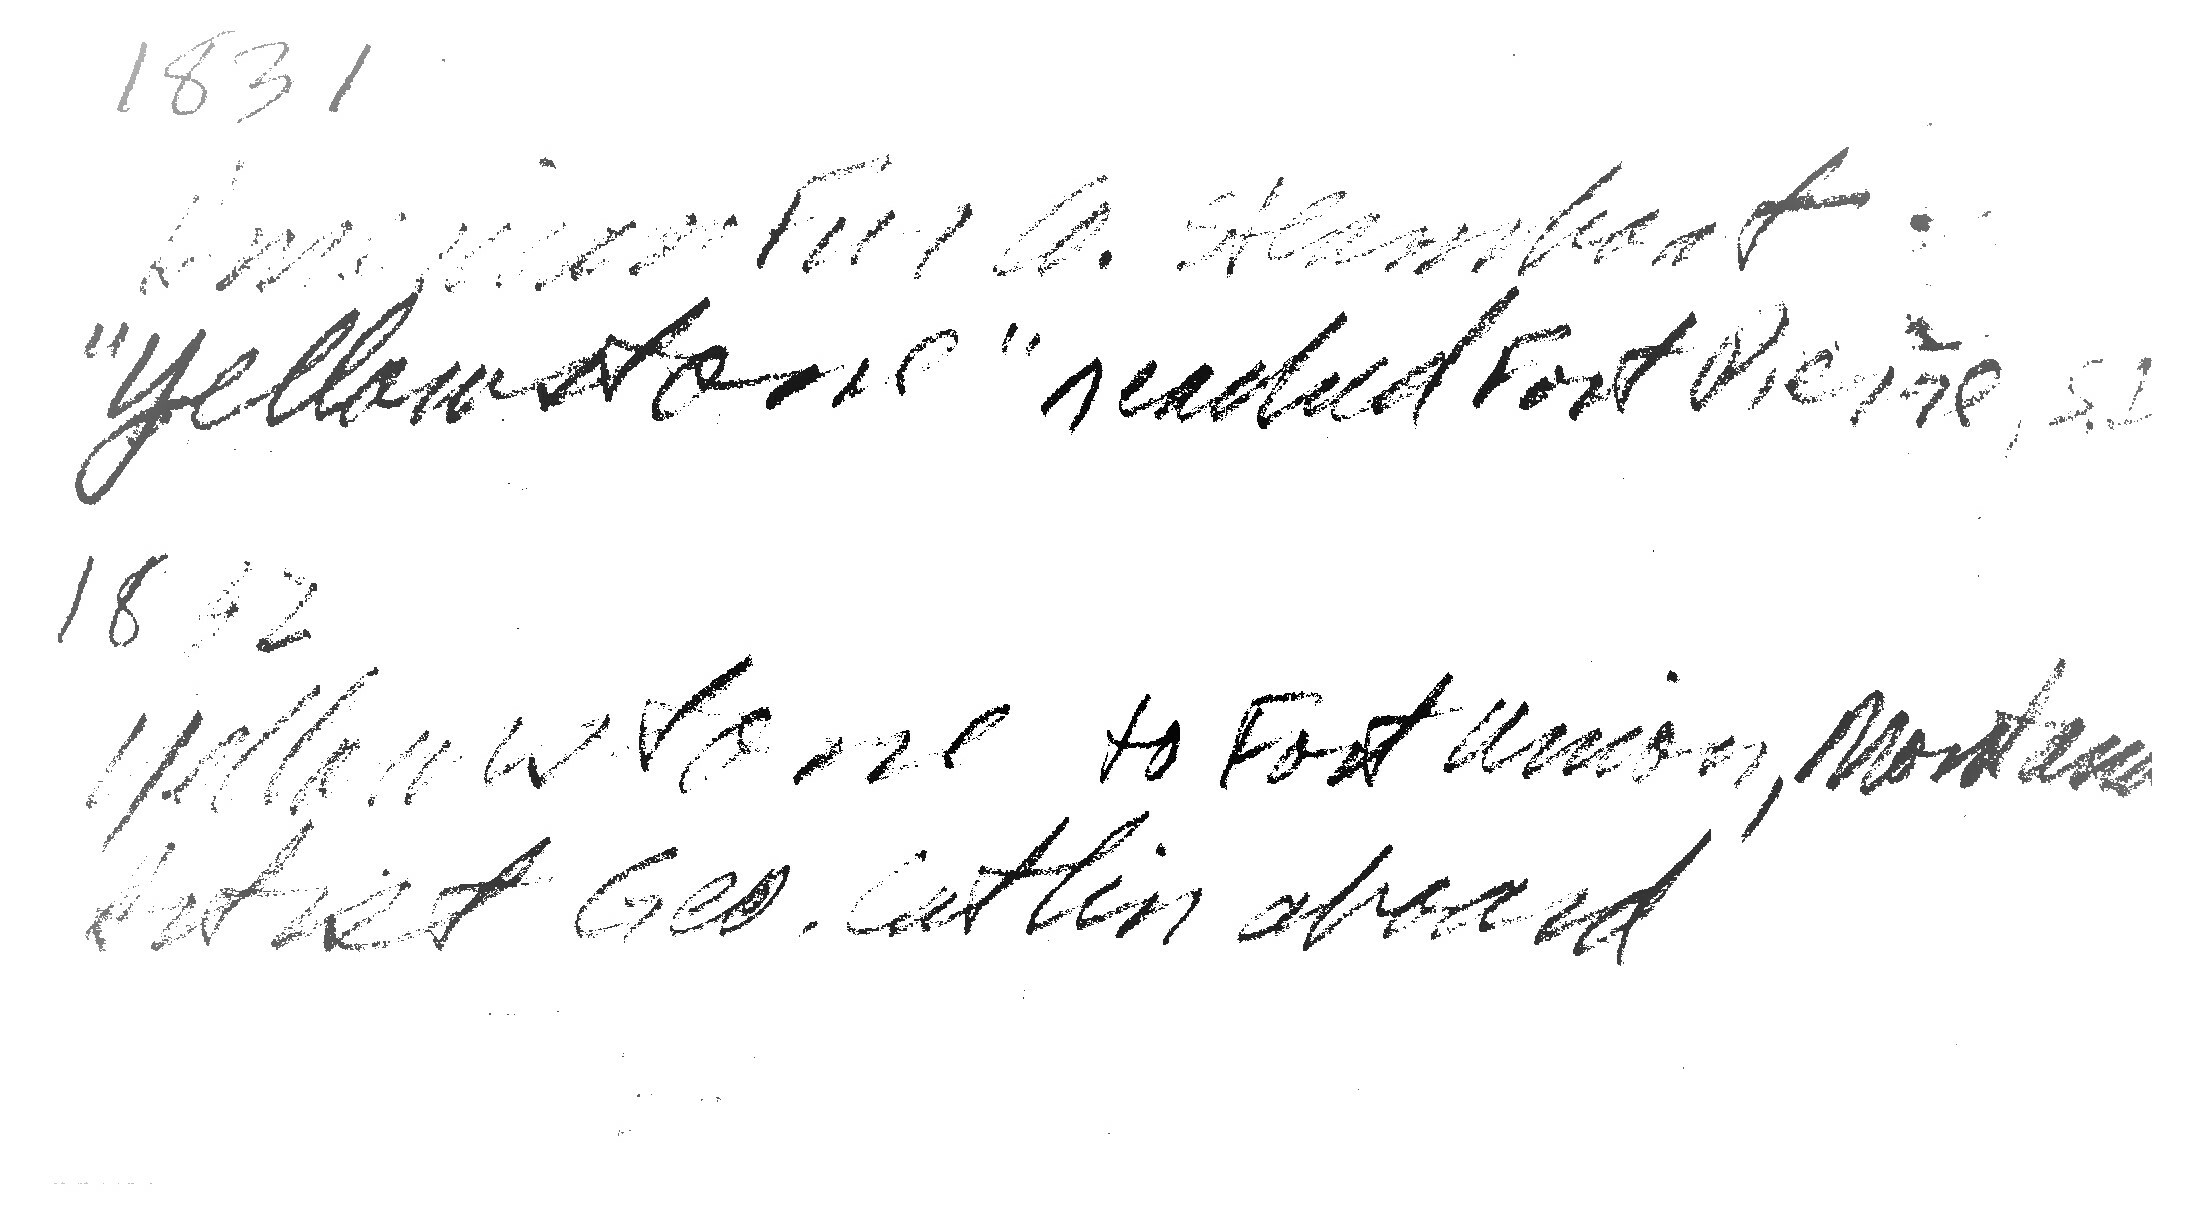 1831
American Fur Co. Steamboat
"Yellowstone" reached Fort Pierre, S.D
1832
Yellowstone to Fort Union, Montana
Artist Geo. Catlin aboard